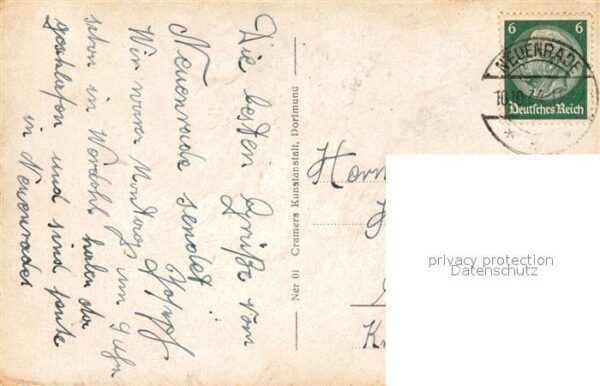 Die besten Grüße vom
Neuenrade sendet
Wir waren Montags um 9 Uhr
schon in Werdohl haben da
geschlafen und sind heute
in Neuenrade
Ner 01 Cramers Kunstanstalt, Dortmund
6 6
NEUENRADE
Deutsches Reich
Herrn
privacy protection
Datenschutz